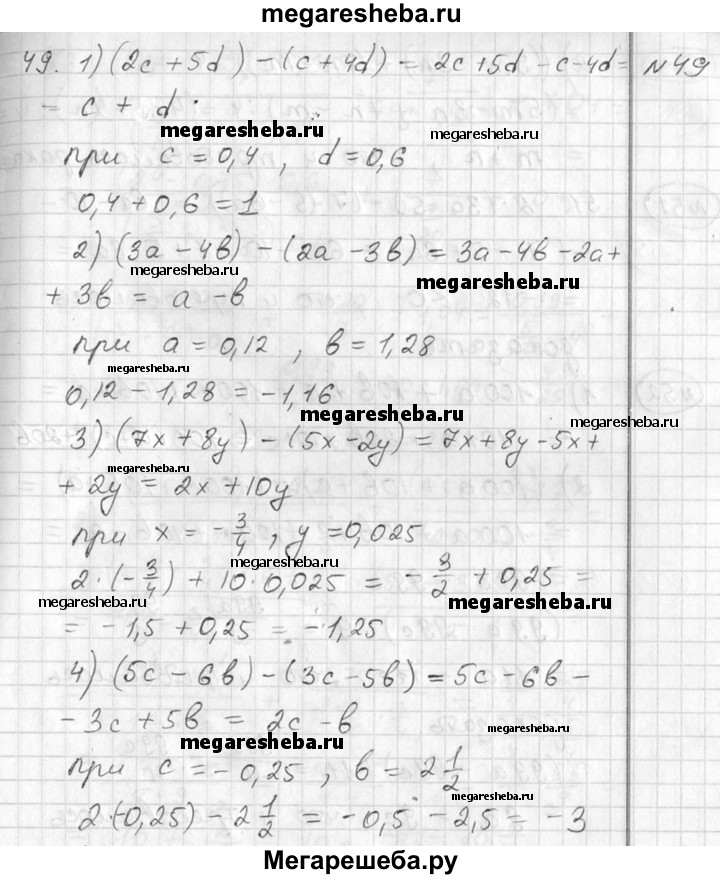 megaresheba.ru
49. 1) (2c + 5d) - (c + 4d) = 2c + 5d - c - 4d = №49
= c + d.
megaresheba.ru megaresheba.ru
при c = 0,4 , d = 0,6
0,4 + 0,6 = 1
2) (3a - 4b) - (2a - 3b) = 3a - 4b - 2a +
megaresheba.ru megaresheba.ru
+ 3b = a - b
при a = 0,12 , b = 1,28
megaresheba.ru
0,12 - 1,28 = -1,16
megaresheba.ru megaresheba.ru
3) (7x + 8y) - (5x - 2y) = 7x + 8y - 5x +
megaresheba.ru
+ 2y = 2x + 10y
при x = -3/4 , y = 0,025
megaresheba.ru
2 · (-3/4) + 10 · 0,025 = -3/2 + 0,25 =
megaresheba.ru megaresheba.ru
= -1,5 + 0,25 = -1,25
4) (5c - 6b) - (3c - 5b) = 5c - 6b -
- 3c + 5b = 2c - b
megaresheba.ru megaresheba.ru
при c = -0,25 , b = 2 1/2
megaresheba.ru
2·(-0,25) - 2 1/2 = -0,5 - 2,5 = -3
Мегарешеба.ру